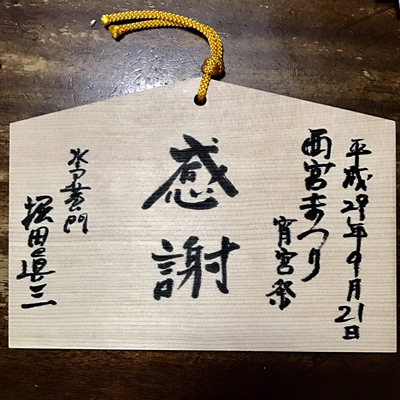 平成29年9月21日
西宮まつり
宵宮祭
感謝
水る黄門
堀田眞三